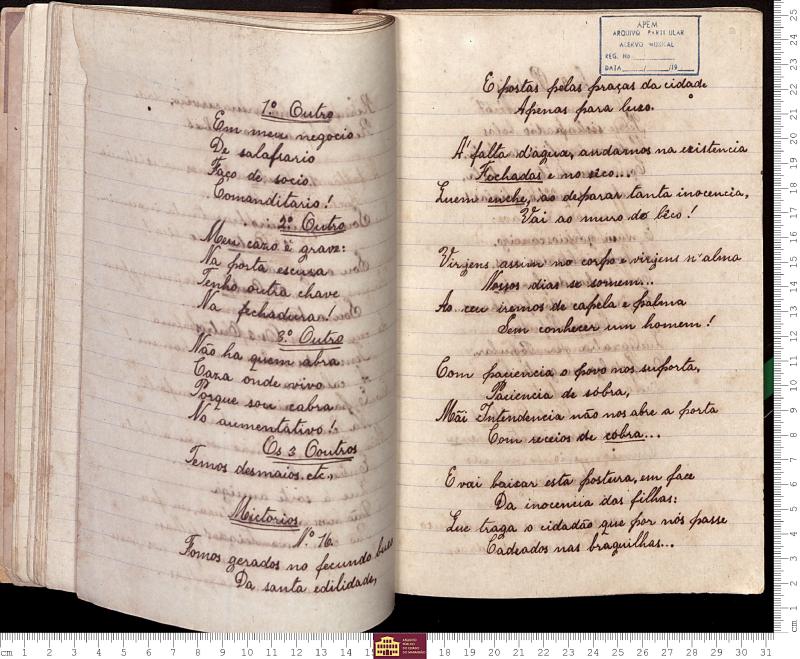 1º Outro
Em meu negocio
De salafrario
Faço de socio
Comanditario!
2º Outro
Meu cazo é grave:
Na porta escura
Tenho outra chave
Na fechadura!
3º Outro
Não ha quem abra
Caza onde vivo
Porque sou cabra
No aumentativo!
Os 3 Coutros
Temos desmaios etc,
Mictorios
Nº 16
Fomos gerados no fecundo
Da santa edilidade,
APEM
ARQUIVO PARTICULAR
ACERVO MUSICAL
REG. No
DATA / /19
E postas pelas praças da cidade
Apenas para luxo.
A' falta d'agua, andamos na existencia
Fechadas e no sêco...
Quem enche, ao deparar tanta inocencia,
Vai ao muro do bêco!
Virgens assim no corpo e virgens n'alma
Nossos dias se somem...
Ao ceu iremos de capela e palma
Sem conhecer um homem!
Com paciencia o povo nos suporta,
Paciencia de sobra,
Mãi Intendencia não nos abre a porta
Com receios de cobra...
E vai baixar esta postura, em face
Da inocencia das filhas:
Que traga o cidadão que por nós passe
Cadeados nas braguilhas...
cm 1 2 3 4 5 6 7 8 9 10 11 12 13 14 15 18 19 20 21 22 23 24 25 26 27 28 29 30 31
cm 1 2 3 4 5 6 7 8 9 10 11 12 13 14 15 16 17 18 19 20 21 22 23 24 25
ARQUIVO
PÚBLICO
DO ESTADO
DO MARANHÃO